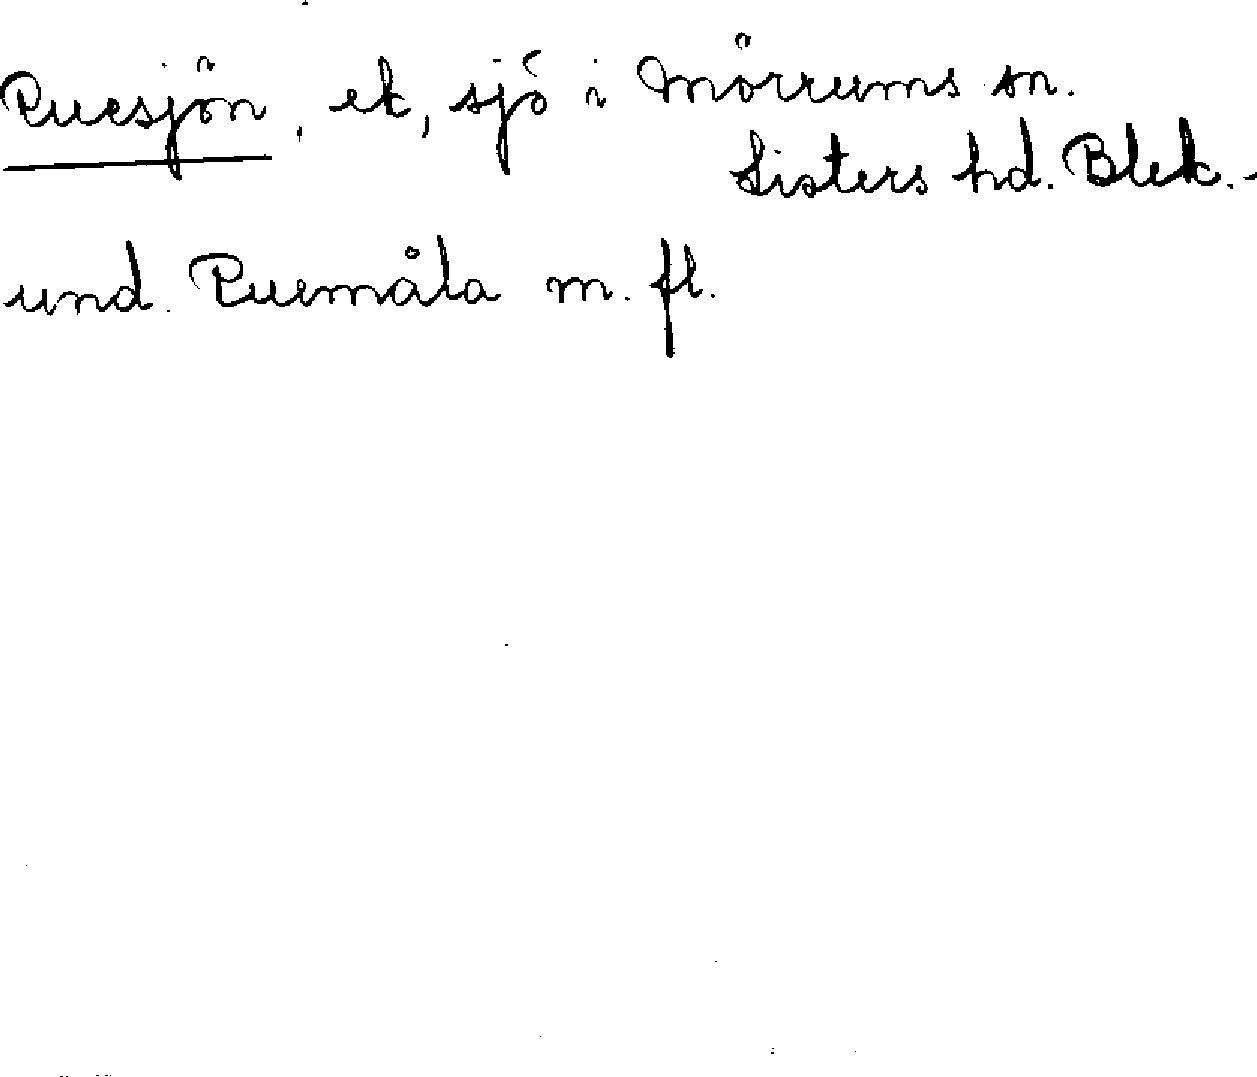 Puesjön, ek, sjö i Mörrums sn.
Listers hd. Blek.-
und. Puemåla m. fl.